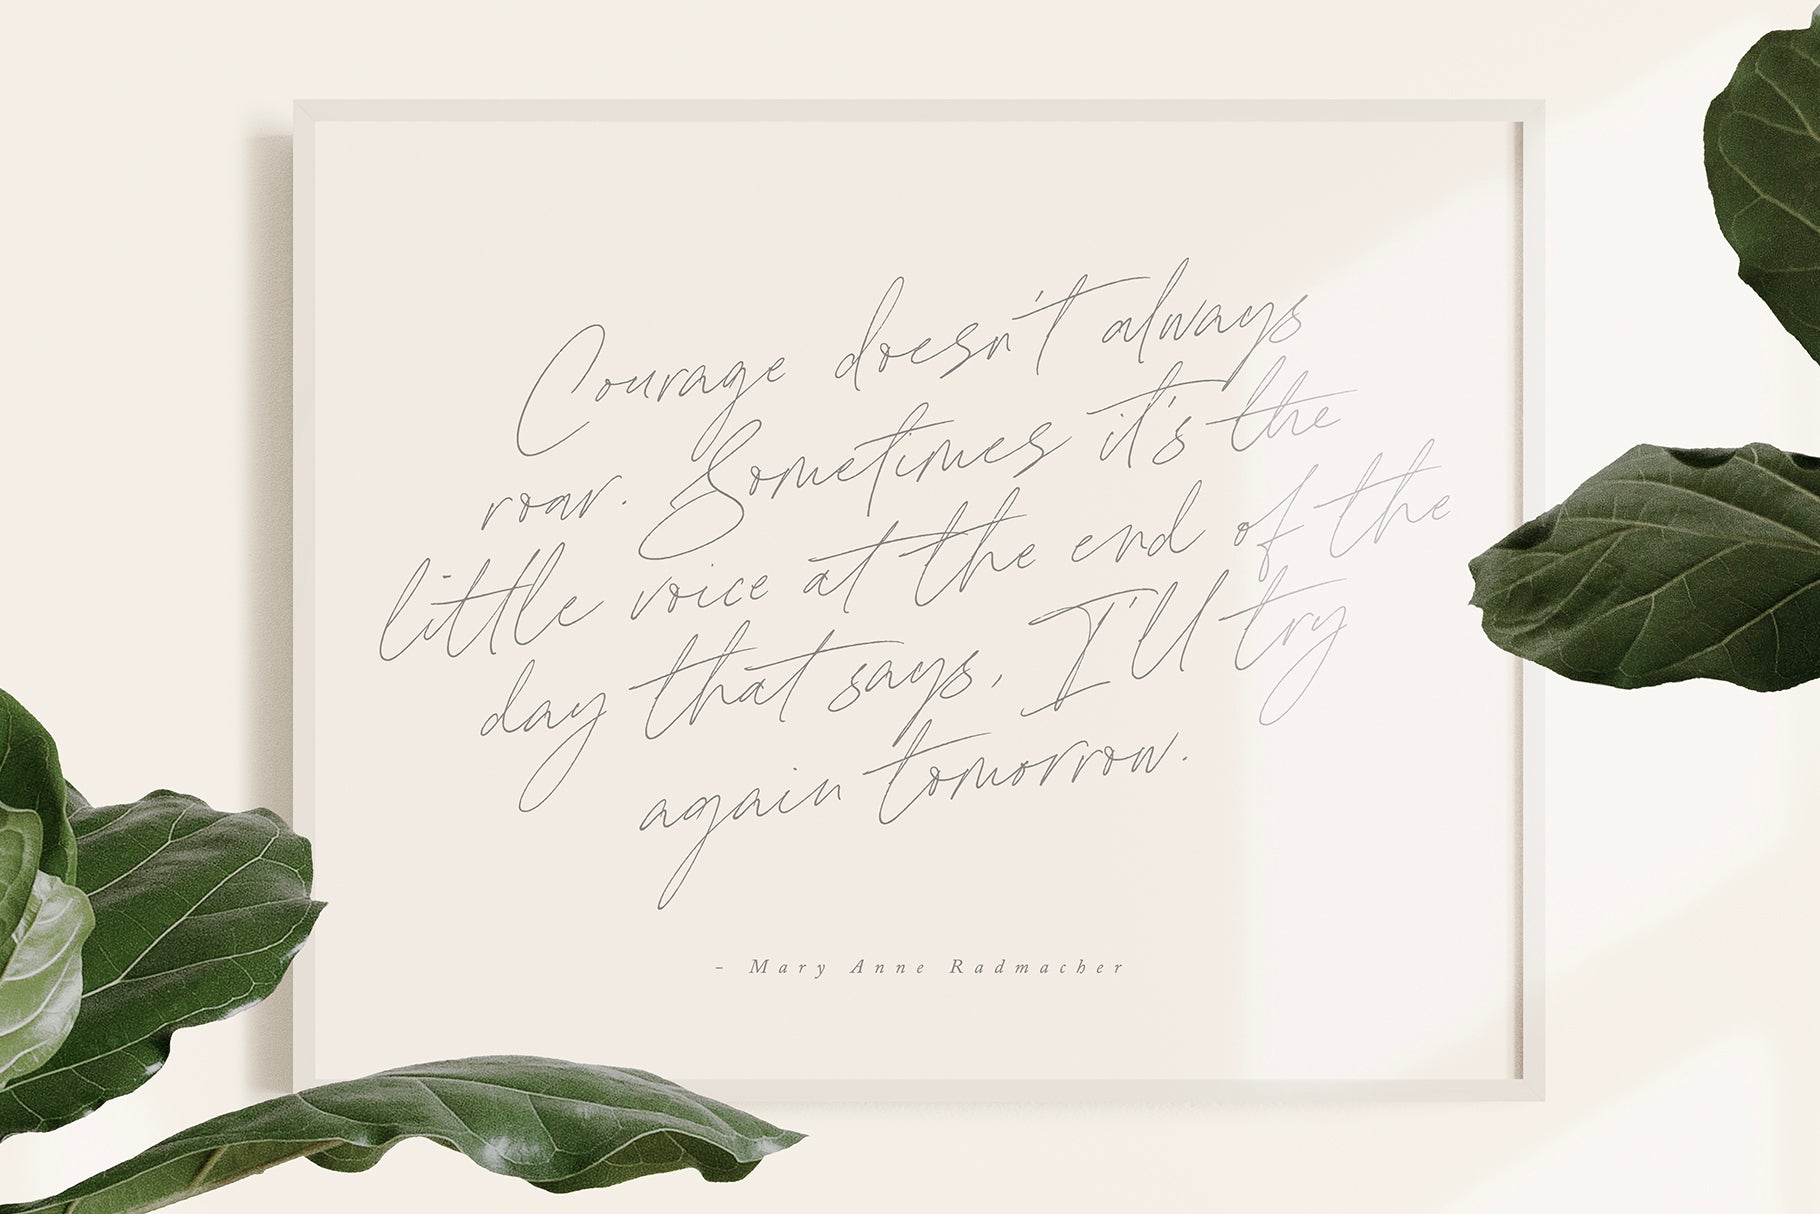 Courage doesn't always
roar. Sometimes it's the
little voice at the end of the
day that says, I'll try
again tomorrow.
- Mary Anne Radmacher